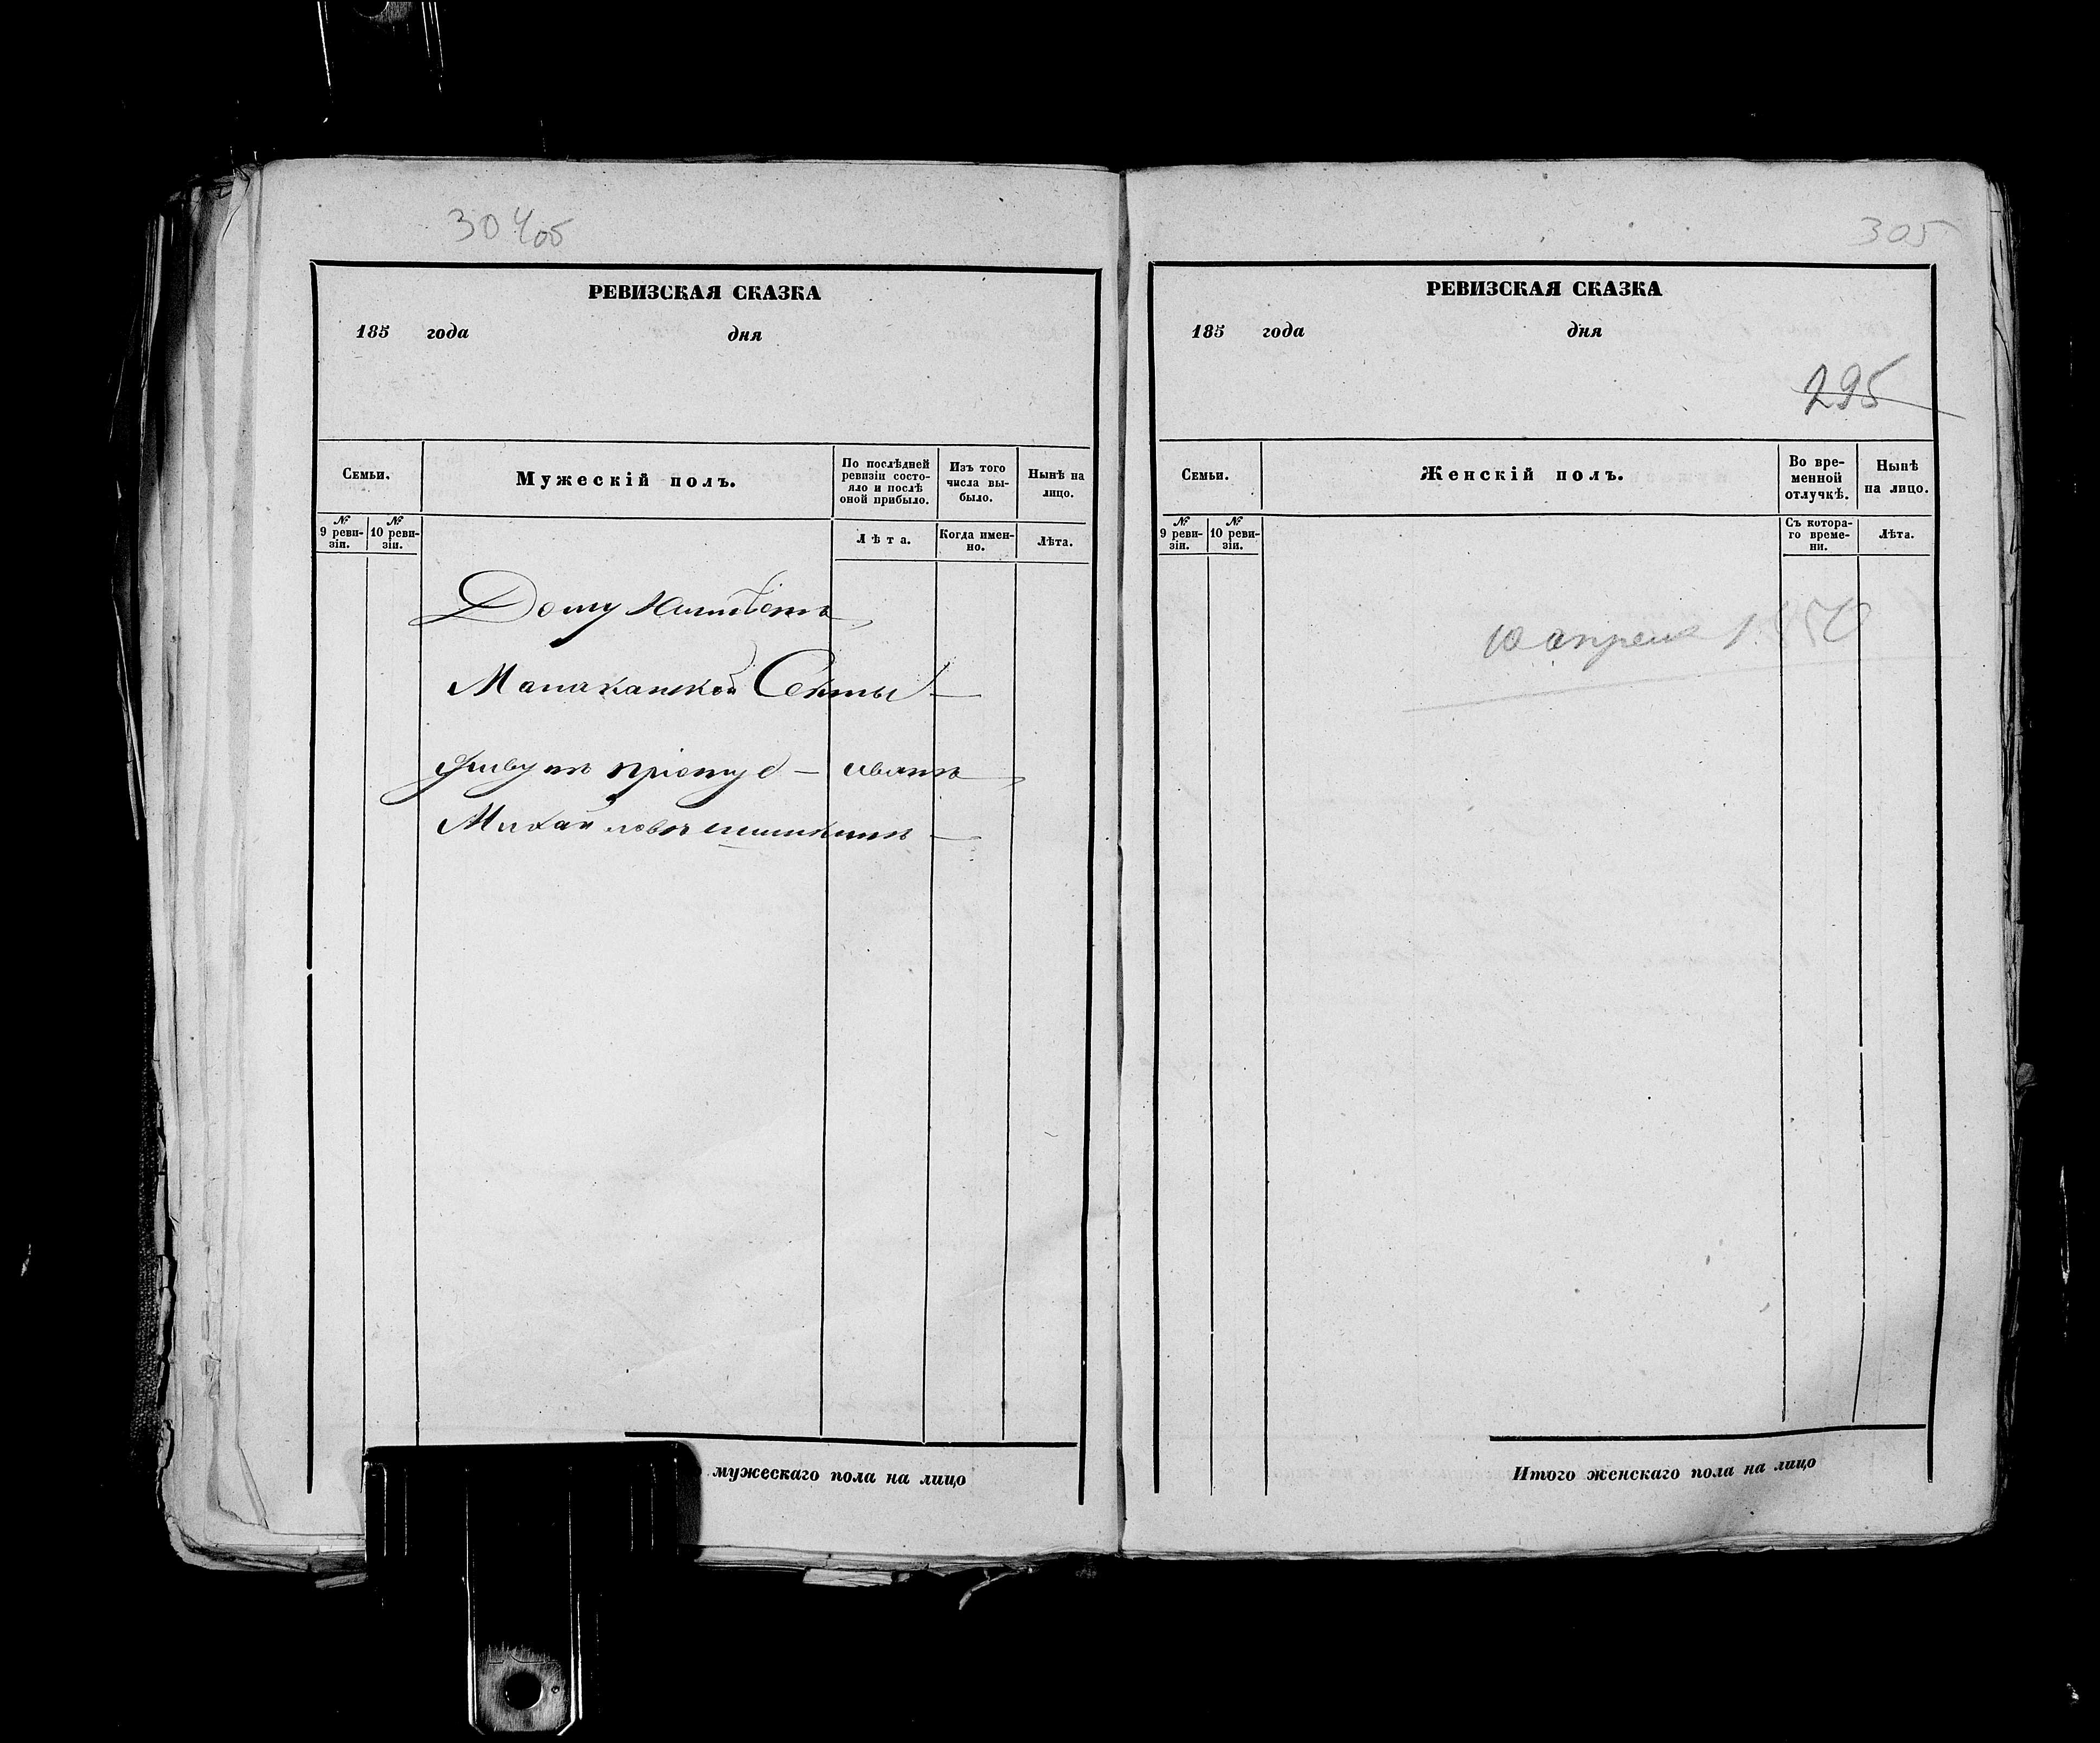 304об
РЕВИЗСКАЯ СКАЗКА
185 года дня
Семьи.
Мужескій полъ.
По послѣдней ревизіи состо-
яло и послѣ
оной прибыло.
Изъ того
числа вы-
было.
Нынѣ на
лицо.
№
9 реви-
зіи.
№
10 реви-
зіи.
Лѣта.
Когда имен-
но.
Лѣта.
Дому
Малаканской Секты
иванъ
Михайловъ
мужескаго пола на лицо
305
РЕВИЗСКАЯ СКАЗКА
185 года дня
295
Семьи.
Женскій полъ.
Во вре-
менной
отлучкѣ.
Нынѣ
на лицо.
№
9 реви-
зіи.
№
10 реви-
зіи.
Съ котора-
го време-
ни.
Лѣта.
10 апреля 1850
Итого женскаго пола на лицо